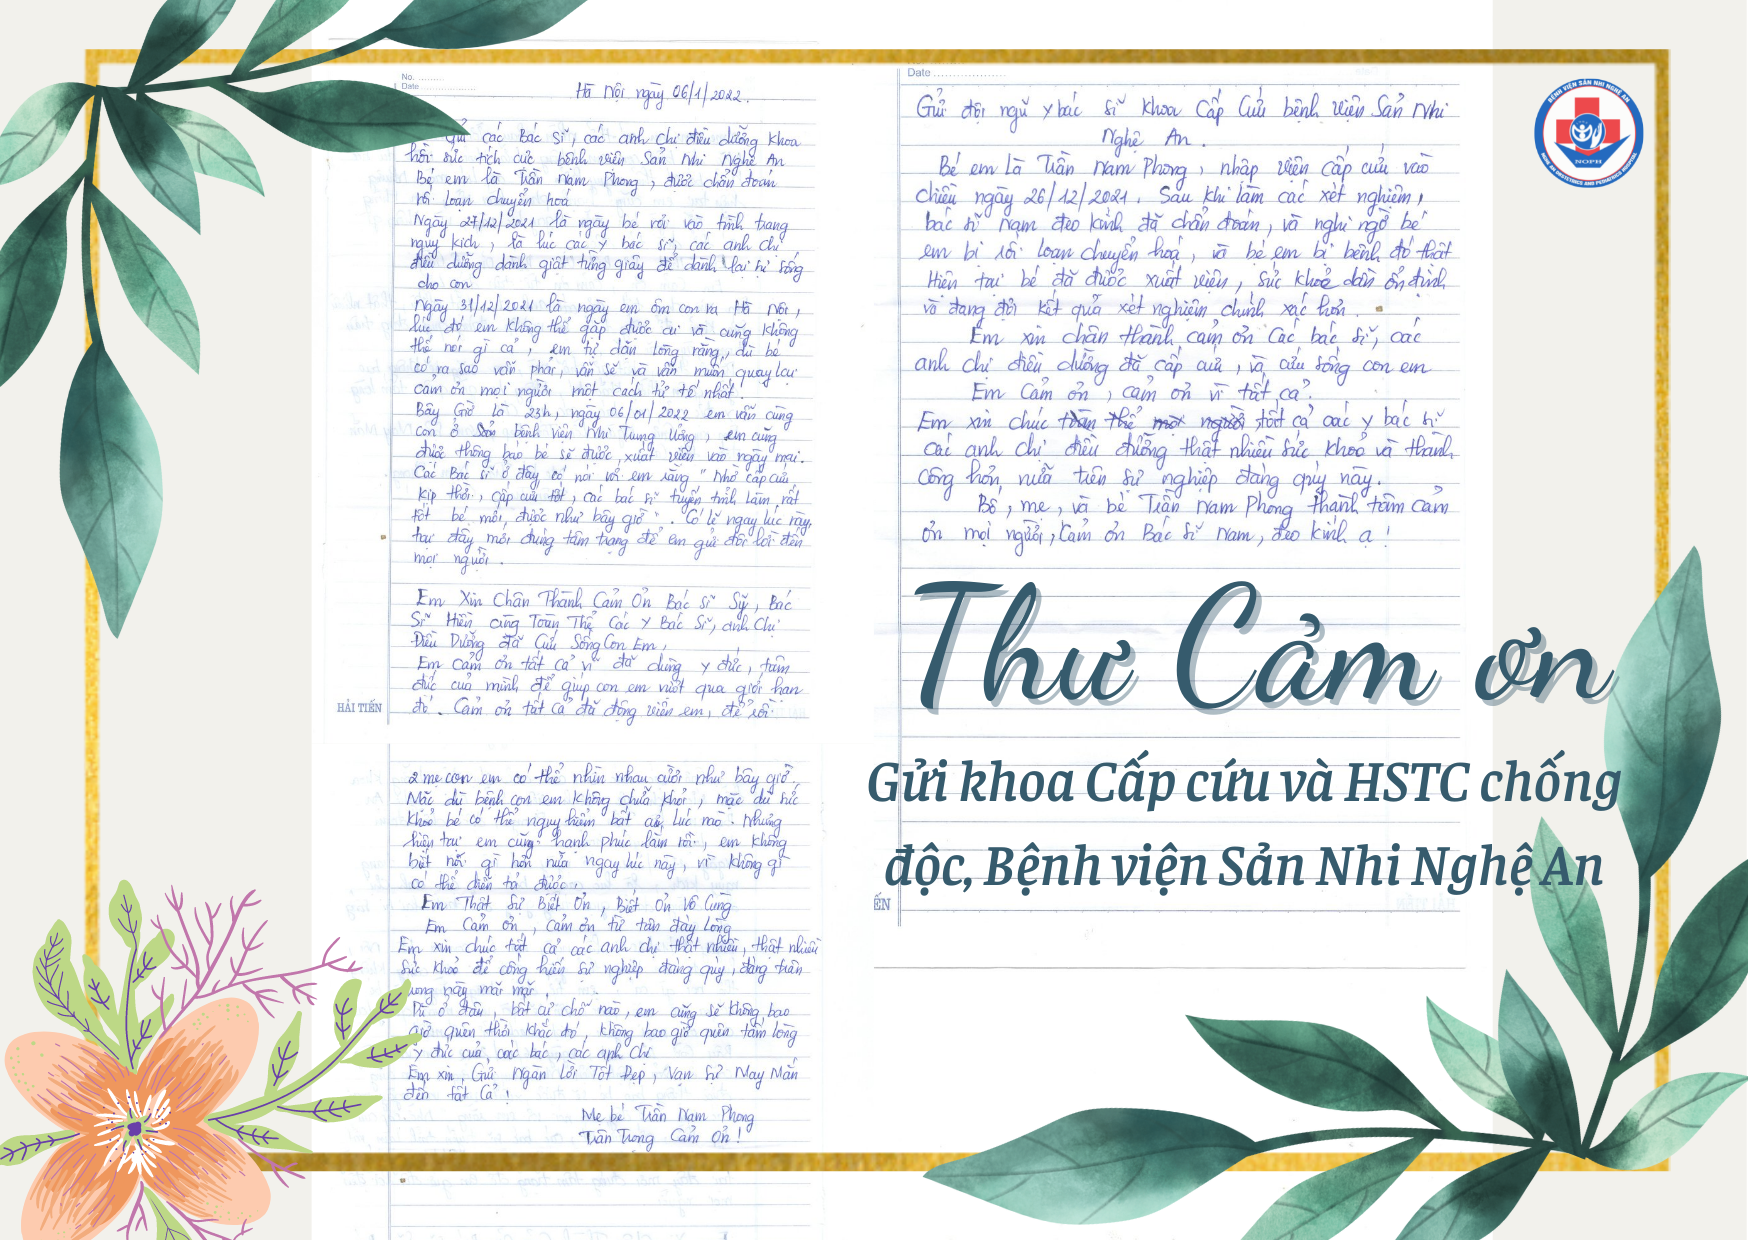 No. ........
Date ...................
Hà Nội ngày 06/1/2022.
Gửi các Bác sĩ, các anh chị điều dưỡng khoa
hồi sức tích cực bệnh viện Sản Nhi Nghệ An
Bé em là Trần Nam Phong, được chẩn đoán
rối loạn chuyển hoá
Ngày 27/12/2021 là ngày bé rơi vào tình trạng
nguy kịch, là lúc các y bác sĩ, các anh chị
điều dưỡng dành giật từng giây để dành lại sự sống
cho con
Ngày 31/12/2021 là ngày em ôm con ra Hà Nội,
lúc đó em không thể gặp được ai và cũng không
thể nói gì cả, em tự dặn lòng rằng, dù bé
có ra sao vẫn phải, vẫn sẽ và vẫn muốn quay lại
cảm ơn mọi người một cách tử tế nhất.
Bây Giờ là 23h, ngày 06/01/2022 em vẫn cùng
con ở bệnh viện Nhi Trung Ương, em cũng
được thông báo bé sẽ được xuất viện vào ngày mai.
Các Bác sĩ ở đây có nói với em rằng "Nhờ cấp cứu
kịp thời, cấp cứu tốt, các bác sĩ tuyến tỉnh làm rất
tốt bé mới được như bây giờ". Có lẽ ngay lúc này,
tại đây mới đúng tâm trạng để em gửi đôi lời đến
mọi người.
Em Xin Chân Thành Cảm Ơn Bác Sĩ Sỹ, Bác
Sĩ Hiền cùng Toàn Thể Các Y Bác Sĩ, anh Chị
Điều Dưỡng đã Cứu Sống Con Em,
Em cảm ơn tất cả vì đã dùng y đức, tâm
đức của mình để giúp con em vượt qua giới hạn
đó. Cảm ơn tất cả đã động viên em, để rồi
HẢI TIẾN
2 mẹ con em có thể nhìn nhau cười như bây giờ.
Mặc dù bệnh con em không chữa khỏi, mặc dù sức
khoẻ bé có thể nguy hiểm bất cứ lúc nào. Nhưng
hiện tại em cũng hạnh phúc lắm rồi, em không
biết nói gì hơn nữa ngay lúc này, vì không gì
có thể diễn tả được.
Em Thật Sự Biết Ơn, Biết Ơn Vô Cùng
Em Cảm ơn, Cảm ơn từ tận đáy Lòng
Em xin chúc tất cả các anh chị thật nhiều, thật nhiều
sức khoẻ để cống hiến sự nghiệp đáng quý, đáng trân
trọng này mãi mãi.
Dù ở đâu, bất cứ chỗ nào, em cũng sẽ không bao
giờ quên thời khắc đó, không bao giờ quên tấm lòng
y đức của các bác, các anh chị
Em xin Gửi Ngàn Lời Tốt Đẹp, Vạn Sự May Mắn
đến tất Cả!
Mẹ bé Trần Nam Phong
Trân Trọng Cảm Ơn!
Date ...................
Gửi đội ngũ y bác sĩ Khoa Cấp Cứu bệnh viện Sản Nhi
Nghệ An.
Bé em là Trần Nam Phong, nhập viện cấp cứu vào
chiều ngày 26/12/2021. Sau khi làm các xét nghiệm,
bác sĩ Nam đeo kính đã chẩn đoán, và nghi ngờ bé
em bị rối loạn chuyển hoá, và bé em bị bệnh đó thật
Hiện tại bé đã được xuất viện, sức khoẻ dần ổn định
và đang đợi kết quả xét nghiệm chính xác hơn.
Em xin chân thành cảm ơn Các bác sĩ, các
anh chị điều dưỡng đã cấp cứu, và cứu sống con em
Em Cảm ơn, cảm ơn vì tất cả.
Em xin chúc toàn thể mọi người tất cả các y bác sĩ
các anh chị điều dưỡng thật nhiều sức khoẻ và thành
công hơn nữa trên sự nghiệp đáng quý này.
Bố, mẹ, và bé Trần Nam Phong thành tâm cảm
ơn mọi người, Cảm ơn Bác Sĩ Nam, đeo kính ạ!
BỆNH VIỆN SẢN NHI NGHỆ AN
NOPH
NGHE AN OBSTETRICS AND PEDIATRICS HOSPITAL
Thư Cảm ơn
Gửi khoa Cấp cứu và HSTC chống
độc, Bệnh viện Sản Nhi Nghệ An
ẾN